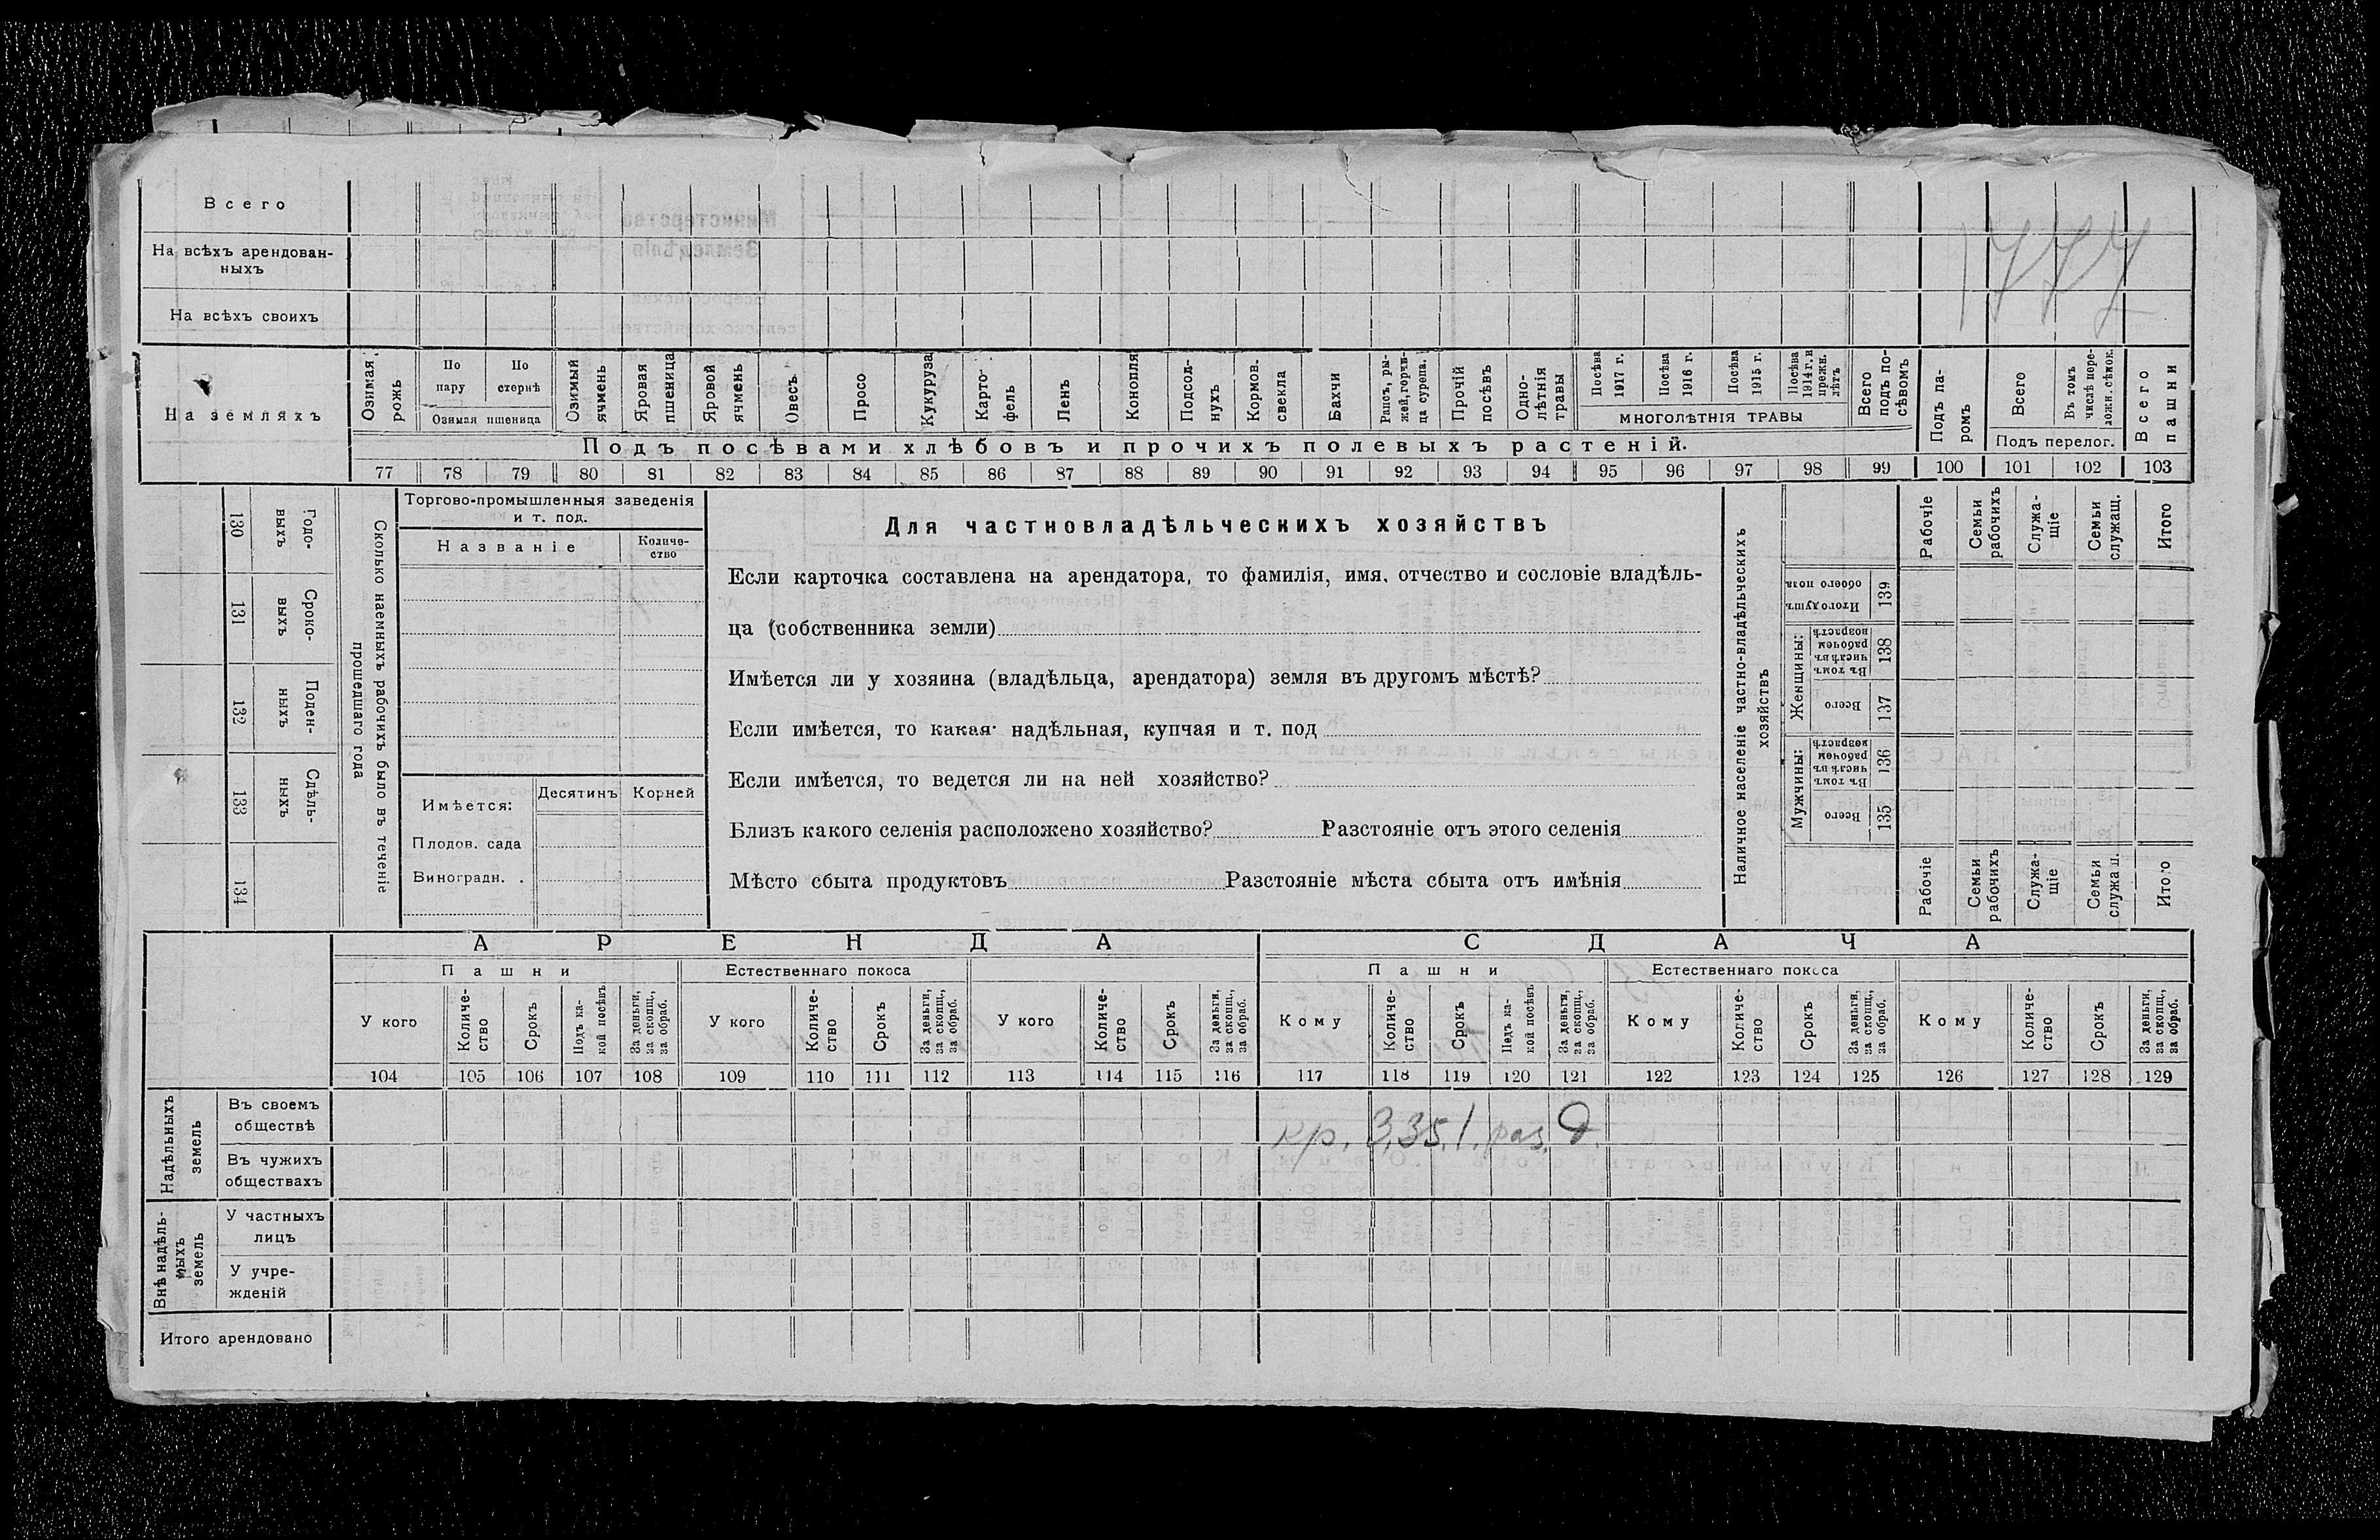 Всего
На всѣхъ арендован-
ныхъ
На всѣхъ своихъ
1777
На земляхъ
Озимая рожь
По пару
По стернѣ
Озимая пшеница
Озимый ячмень
Яровая пшеница
Яровой ячмень
Овесъ
Просо
Кукуруза
Карто-
фель
Ленъ
Конопля
Подсол-
нухъ
Кормов.
свекла
Бахчи
Рапсъ, ры-
жей, горчи-
ца сурепа.
Прочій посѣвъ
Одно-
лѣтнія
травы
Посѣва 1917 г.
Посѣва 1916 г.
Посѣва 1915 г.
Посѣва 1914 г. и прежн. лѣтъ
МНОГОЛѢТНІЯ ТРАВЫ
Всего подъ по-
сѣвомъ
Подъ па-
ромъ
Всего
Въ томъ числѣ пере-
ложн. сѣнок.
Подъ перелог.
Всего пашни
Подъ посѣвами хлѣбовъ и прочихъ полевыхъ растеній.
77 78 79 80 81 82 83 84 85 86 87 88 89 90 91 92 93 94 95 96 97 98 99 100 101 102 103
130 Годо-
выхъ
131 Сроко-
выхъ
132 Поден-
ныхъ
133 Сдѣль-
ныхъ
134
Сколько наемныхъ рабочихъ было въ теченіе
прошедшаго года
Торгово-промышленныя заведенія
и т. под.
Названіе
Количе-
ство
Имѣется:
Десятинъ
Корней
Плодов. сада
Виноградн. .
Для частновладѣльческихъ хозяйствъ
Если карточка составлена на арендатора, то фамилія, имя, отчество и сословіе владѣль-
ца (собственника земли)
Имѣется ли у хозяина (владѣльца, арендатора) земля въ другомъ мѣстѣ?
Если имѣется, то какая: надѣльная, купчая и т. под
Если имѣется, то ведется ли на ней хозяйство?
Близъ какого селенія расположено хозяйство? Разстояніе отъ этого селенія
Мѣсто сбыта продуктовъ Разстояніе мѣста сбыта отъ имѣнія
Наличное населеніе частно-владѣльческихъ
хозяйствъ
Рабочіе
Семьи рабочихъ
Служа-
щіе
Семьи служащ.
Итого
Итого душъ обоего пола 139
Женщины:
Въ томъ числѣ въ рабочемъ возрастѣ 138
Всего 137
Мужчины:
Въ томъ числѣ въ рабочемъ возрастѣ 136
Всего 135
Рабочіе
Семьи рабочихъ
Служа-
щіе
Семьи служащ.
Итого
АРЕНДА
СДАЧА
Пашни
Естественнаго покоса
Пашни
Естественнаго покоса
У кого
Количе-
ство
Срокъ
Подъ ка-
кой посѣвъ
За деньги,
за скопщ.,
за обраб.
У кого
Количе-
ство
Срокъ
За деньги,
за скопщ.,
за обраб.
У кого
Количе-
ство
Срокъ
За деньги,
за скопщ.,
за обраб.
Кому
Количе-
ство
Срокъ
Подъ ка-
кой посѣвъ
За деньги,
за скопщ.,
за обраб.
Кому
Количе-
ство
Срокъ
За деньги,
за скопщ.,
за обраб.
Кому
Количе-
ство
Срокъ
За деньги,
за скопщ.,
за обраб.
104 105 106 107 108 109 110 111 112 113 114 115 116 117 118 119 120 121 122 123 124 125 126 127 128 129
Надѣльныхъ
земель
Въ своемъ
обществѣ
кр. 3,35. 1. раз. д.
Въ чужихъ
обществахъ
Внѣ надѣль-
ныхъ
земель
У частныхъ
лицъ
У учре-
жденій
Итого арендовано